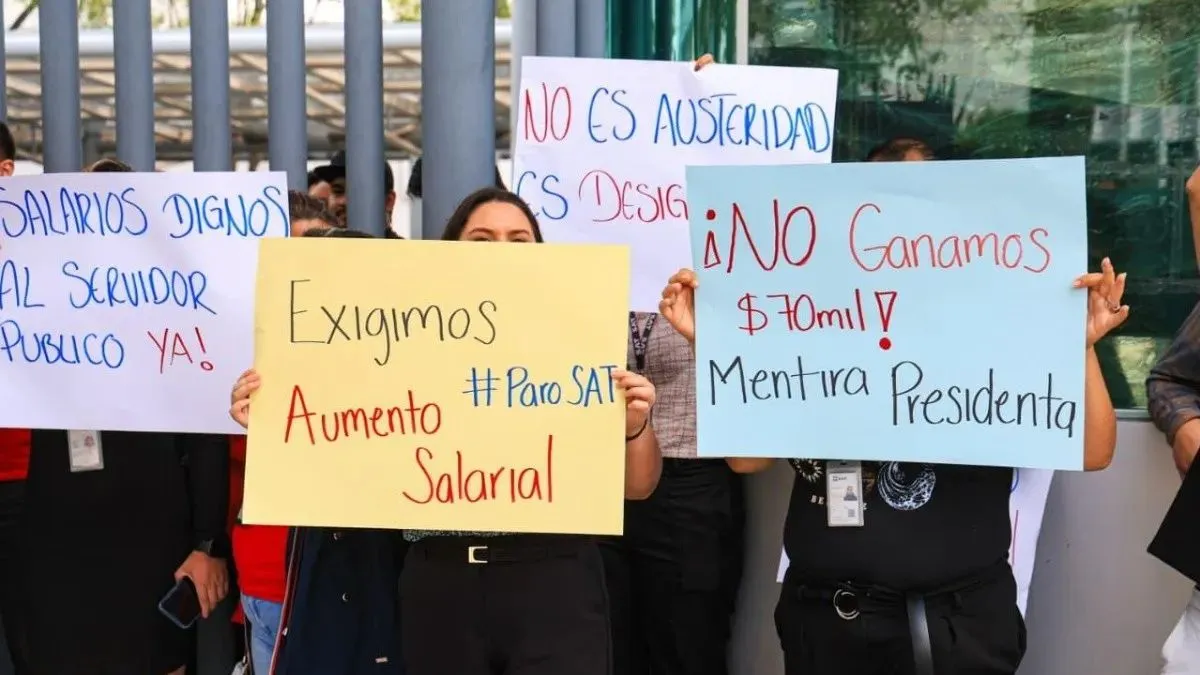 SALARIOS DIGNOS
AL SERVIDOR
PUBLICO YA!
Exigimos
#ParoSAT
Aumento
Salarial
NO ES AUSTERIDAD
ES
¡NO Ganamos
$70mil!
Mentira Presidenta